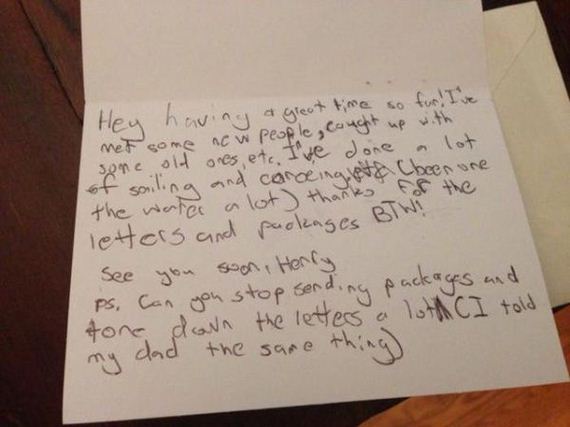 Hey having a great time so far! I've
met some new people, caught up with
some old ones, etc. I've done a lot
of sailing and canoeing (been one
the water a lot) thanks for the
letters and packages BTW!
See you soon, Henry
PS. Can you stop sending packages and
tone down the letters a lot (I told
my dad the same thing)